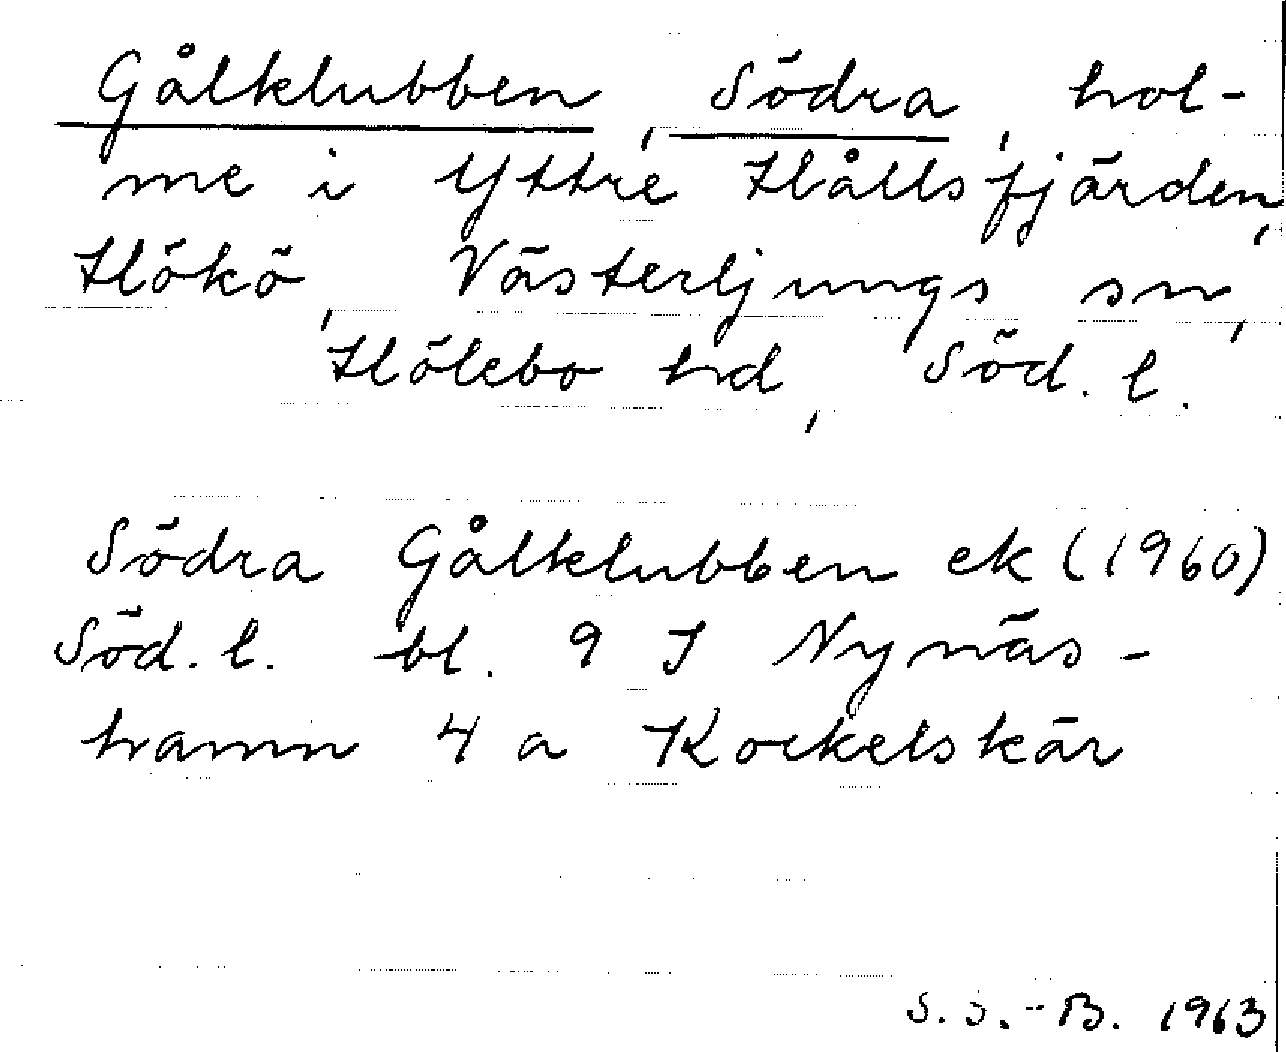 Gålklubben, Södra, hol-
me i Yttre Hållsfjärden,
Hökö, Västerljungs sn,
Hölebo hd, Söd. l.
Södra Gålklubben ek (1960)
Söd. l. bl. 9 J Nynäs-
hamn 4 a Kockelskär
S. S.-B. 1963